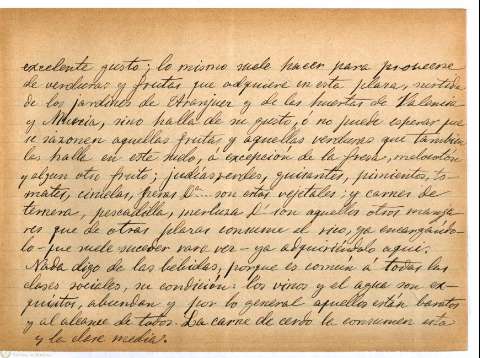 excelente gusto; lo mismo suele hacer para proveerse
de verduras y frutas que adquiere en esta plaza, surtida
de los jardines de Aranjuez y de las huertas de Valencia
y Murcia, sino halla de su gusto, ó no puede esperar que
se sazonen aquellas frutas y aquellas verduras que tambien
las halla en este suelo, á excepcion de la fresa, melocoton
y algun otro fruto; judias verdes, guisantes, pimientos, to-
mates, ciruelas, peras Dª.... son estos vejetales; y carnes de
ternera, pescadilla, merluza Dª son aquellos otros manja-
res que de otras plazas consume el rico, ya encargándo-
lo - que suele suceder rara vez - ya adquiriéndolo aqui.
Nada digo de las bebidas, porque es comun á todas las
clases sociales, su condición: los vinos y el agua son ex-
quisitos, abundan y por lo general aquellos están baratos
y al alcance de todos. La carne de cerdo la consumen esta
y la clase media.